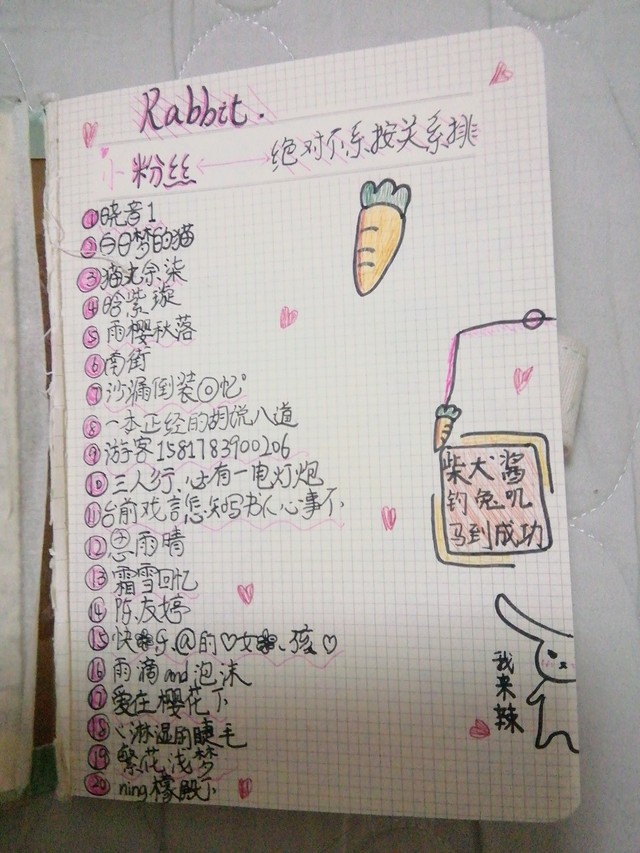 Rabbit.
小粉丝 绝对不系按关系排
①晓音1
②白日梦的猫
③猫丸余柒
④晗紫璇
⑤雨樱秋落
⑥南街
⑦沙漏倒装回忆°
⑧一本正经的胡说八道
⑨游客1581783900206
⑩三人行、必有一电灯炮
⑪台前戏言怎知吗书人心事不
⑫雨晴
⑬霜雪回忆
⑭陈友婷
⑮快乐@的♡女孩♡
⑯雨滴and泡沫
⑰爱在樱花下
⑱心淋湿的睫毛
⑲繁花浅梦
⑳ning檬殿下
柴犬酱
钓兔叽
马到成功
我来辣